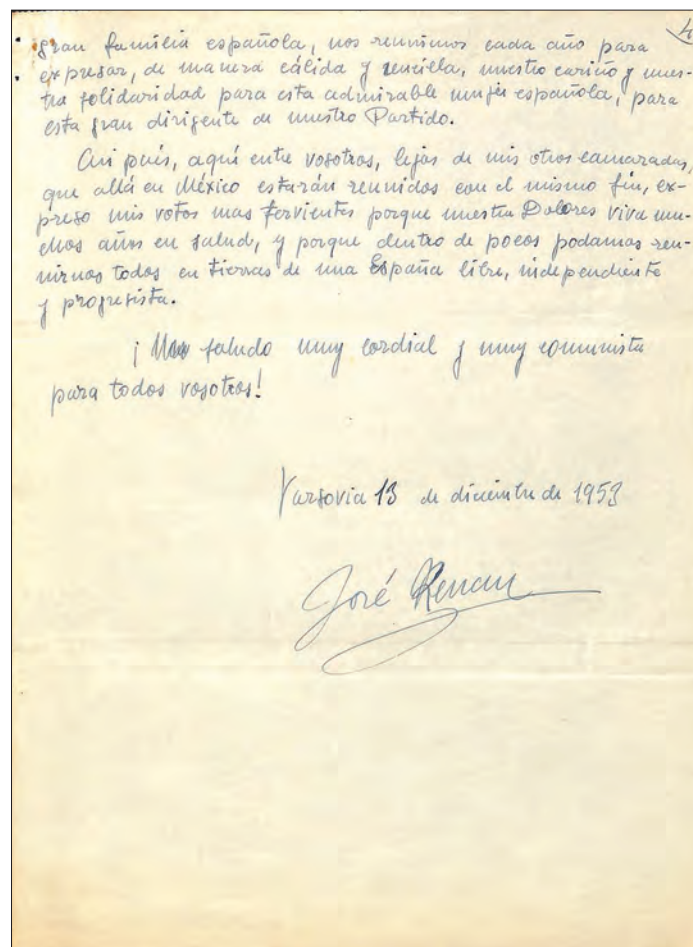 4
gran familia española, nos reunimos cada año para
expresar, de manera cálida y sencilla, nuestro cariño y nues-
tra solidaridad para esta admirable mujer española, para
esta gran dirigente de nuestro Partido.
Así pués, aquí entre vosotros, lejos de mis otros camaradas,
que allá en México estarán reunidos con el mismo fin, ex-
preso mis votos mas fervientes porque nuestra Dolores viva mu-
chos años en salud, y porque dentro de pocos podamos reu-
nirnos todos en tierras de una España libre, independiente
y progresista.
¡Un saludo muy cordial y muy comunista
para todos vosotros!
Varsovia 13 de diciembre de 1953
José Renau